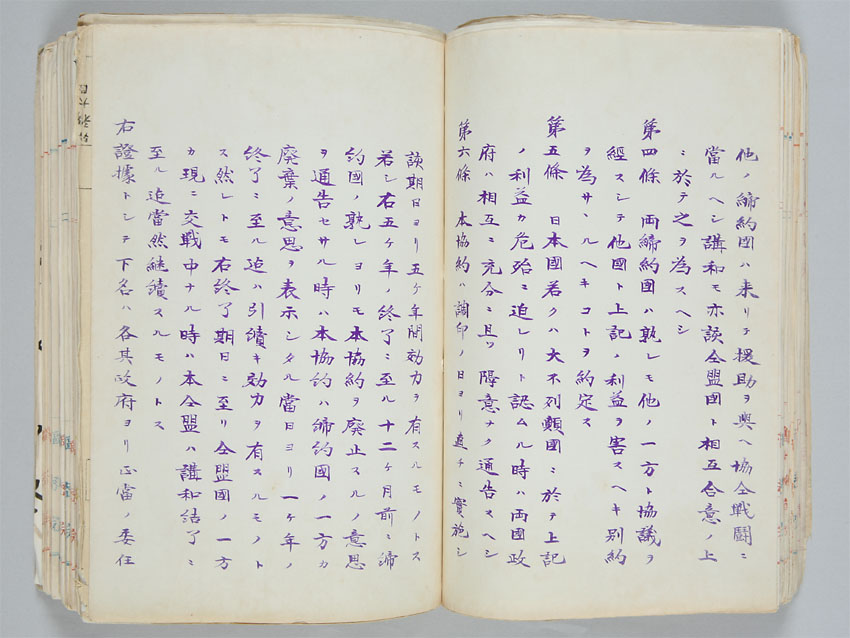 他ノ締約國ハ来リテ援助ヲ與ヘ協仝戦闘ニ
當ルヘシ講和モ亦該仝盟国ト相互合意ノ上
ニ於テ之ヲ為スヘシ
第四條 両締約國ハ孰レモ他ノ一方ト協議ヲ
經スシテ他國ト上記ノ利益ヲ害スヘキ別約
ヲ為サヽルヘキコトヲ約定ス
第五條 日本國若クハ大不列顛國ニ於テ上記
ノ利益カ危殆ニ迫レリト認ムル時ハ両國政
府ハ相互ニ充分ニ且ツ隔意ナク通告スヘシ
第六條 本協約ハ調印ノ日ヨリ直チニ實施シ
該期日ヨリ五ケ年間効力ヲ有スルモノトス
若シ右五ケ年ノ終了ニ至ル十二ケ月前ニ締
約國ノ孰レヨリモ本協約ヲ廃止スルノ意思
ヲ通告セサル時ハ本協約ハ締約國ノ一方カ
廃棄ノ意思ヲ表示シタル當日ヨリ一ケ年ノ
終了ニ至ル迄ハ引續キ効力ヲ有スルモノト
ス然レトモ右終了期日ニ至リ仝盟國ノ一方
カ現ニ交戦中ナル時ハ本仝盟ハ講和結了ニ
至ル迄當然継續スルモノトス
右證據トシテ下名ハ各其政府ヨリ正當ノ委任